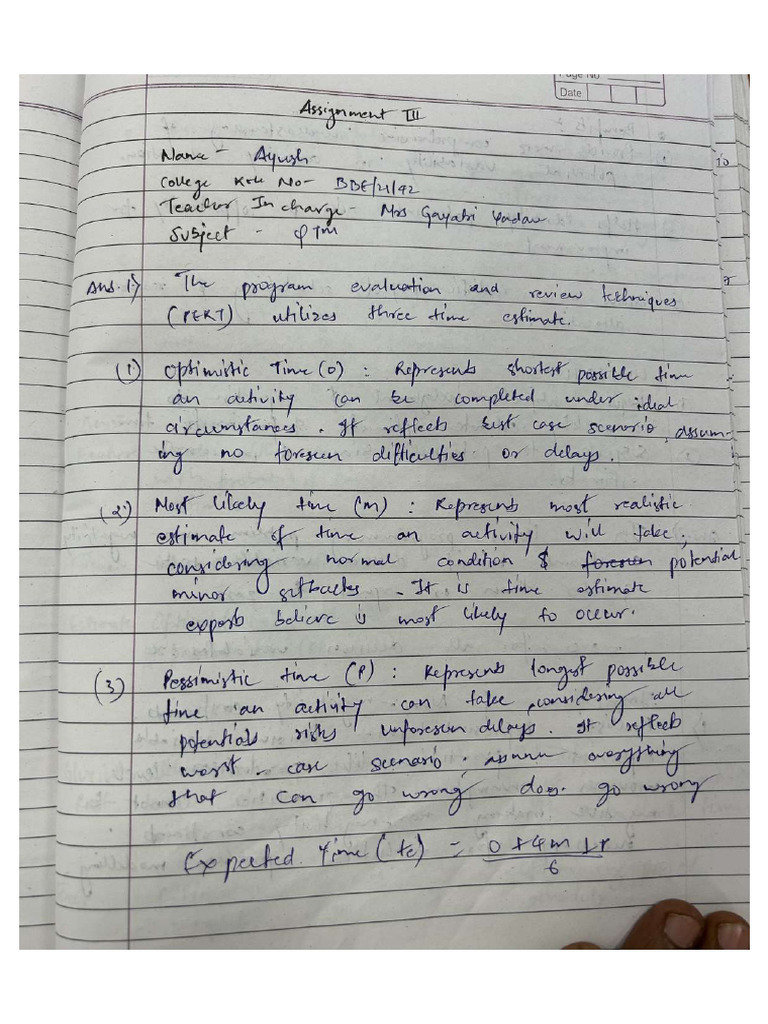 Page No
Date
Assignment III
Name - Ayush
College Roll No - BBE/21/92
Teacher In charge - Mrs Gayatri Yadav
Subject - QTM
Ans. 1) The program evaluation and review techniques
(PERT) utilizes three time estimate.
(1) Optimistic Time (O) : Represents shortest possible time
an activity can be completed under ideal
circumstances. It reflects best case scenario, assum-
ing no foreseen difficulties or delays.
(2) Most likely time (m) : Represents most realistic
estimate of time an activity will take,
considering normal condition & foreseen potential
minor setbacks. It is time estimate
experts believe is most likely to occur.
(3) Pessimistic time (P) : Represents longest possible
time an activity can take, considering all
potentials risks unforeseen delays. It reflects
worst case scenario, assume everything
that can go wrong does go wrong
Expected Time (te) = O + 4m + P
6